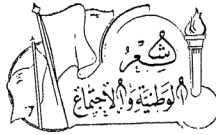 شِعْرُ
الوَطَنِيَّة وَالاجْتِمَاع